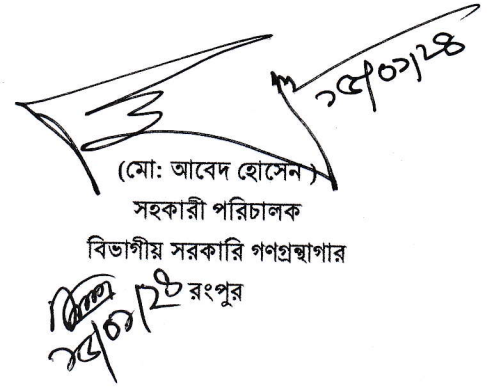 ১৫/০১/২৪
(মো: আবেদ হোসেন)
সহকারী পরিচালক
বিভাগীয় সরকারি গণগ্রন্থাগার
রংপুর
১৫/০১/২৪